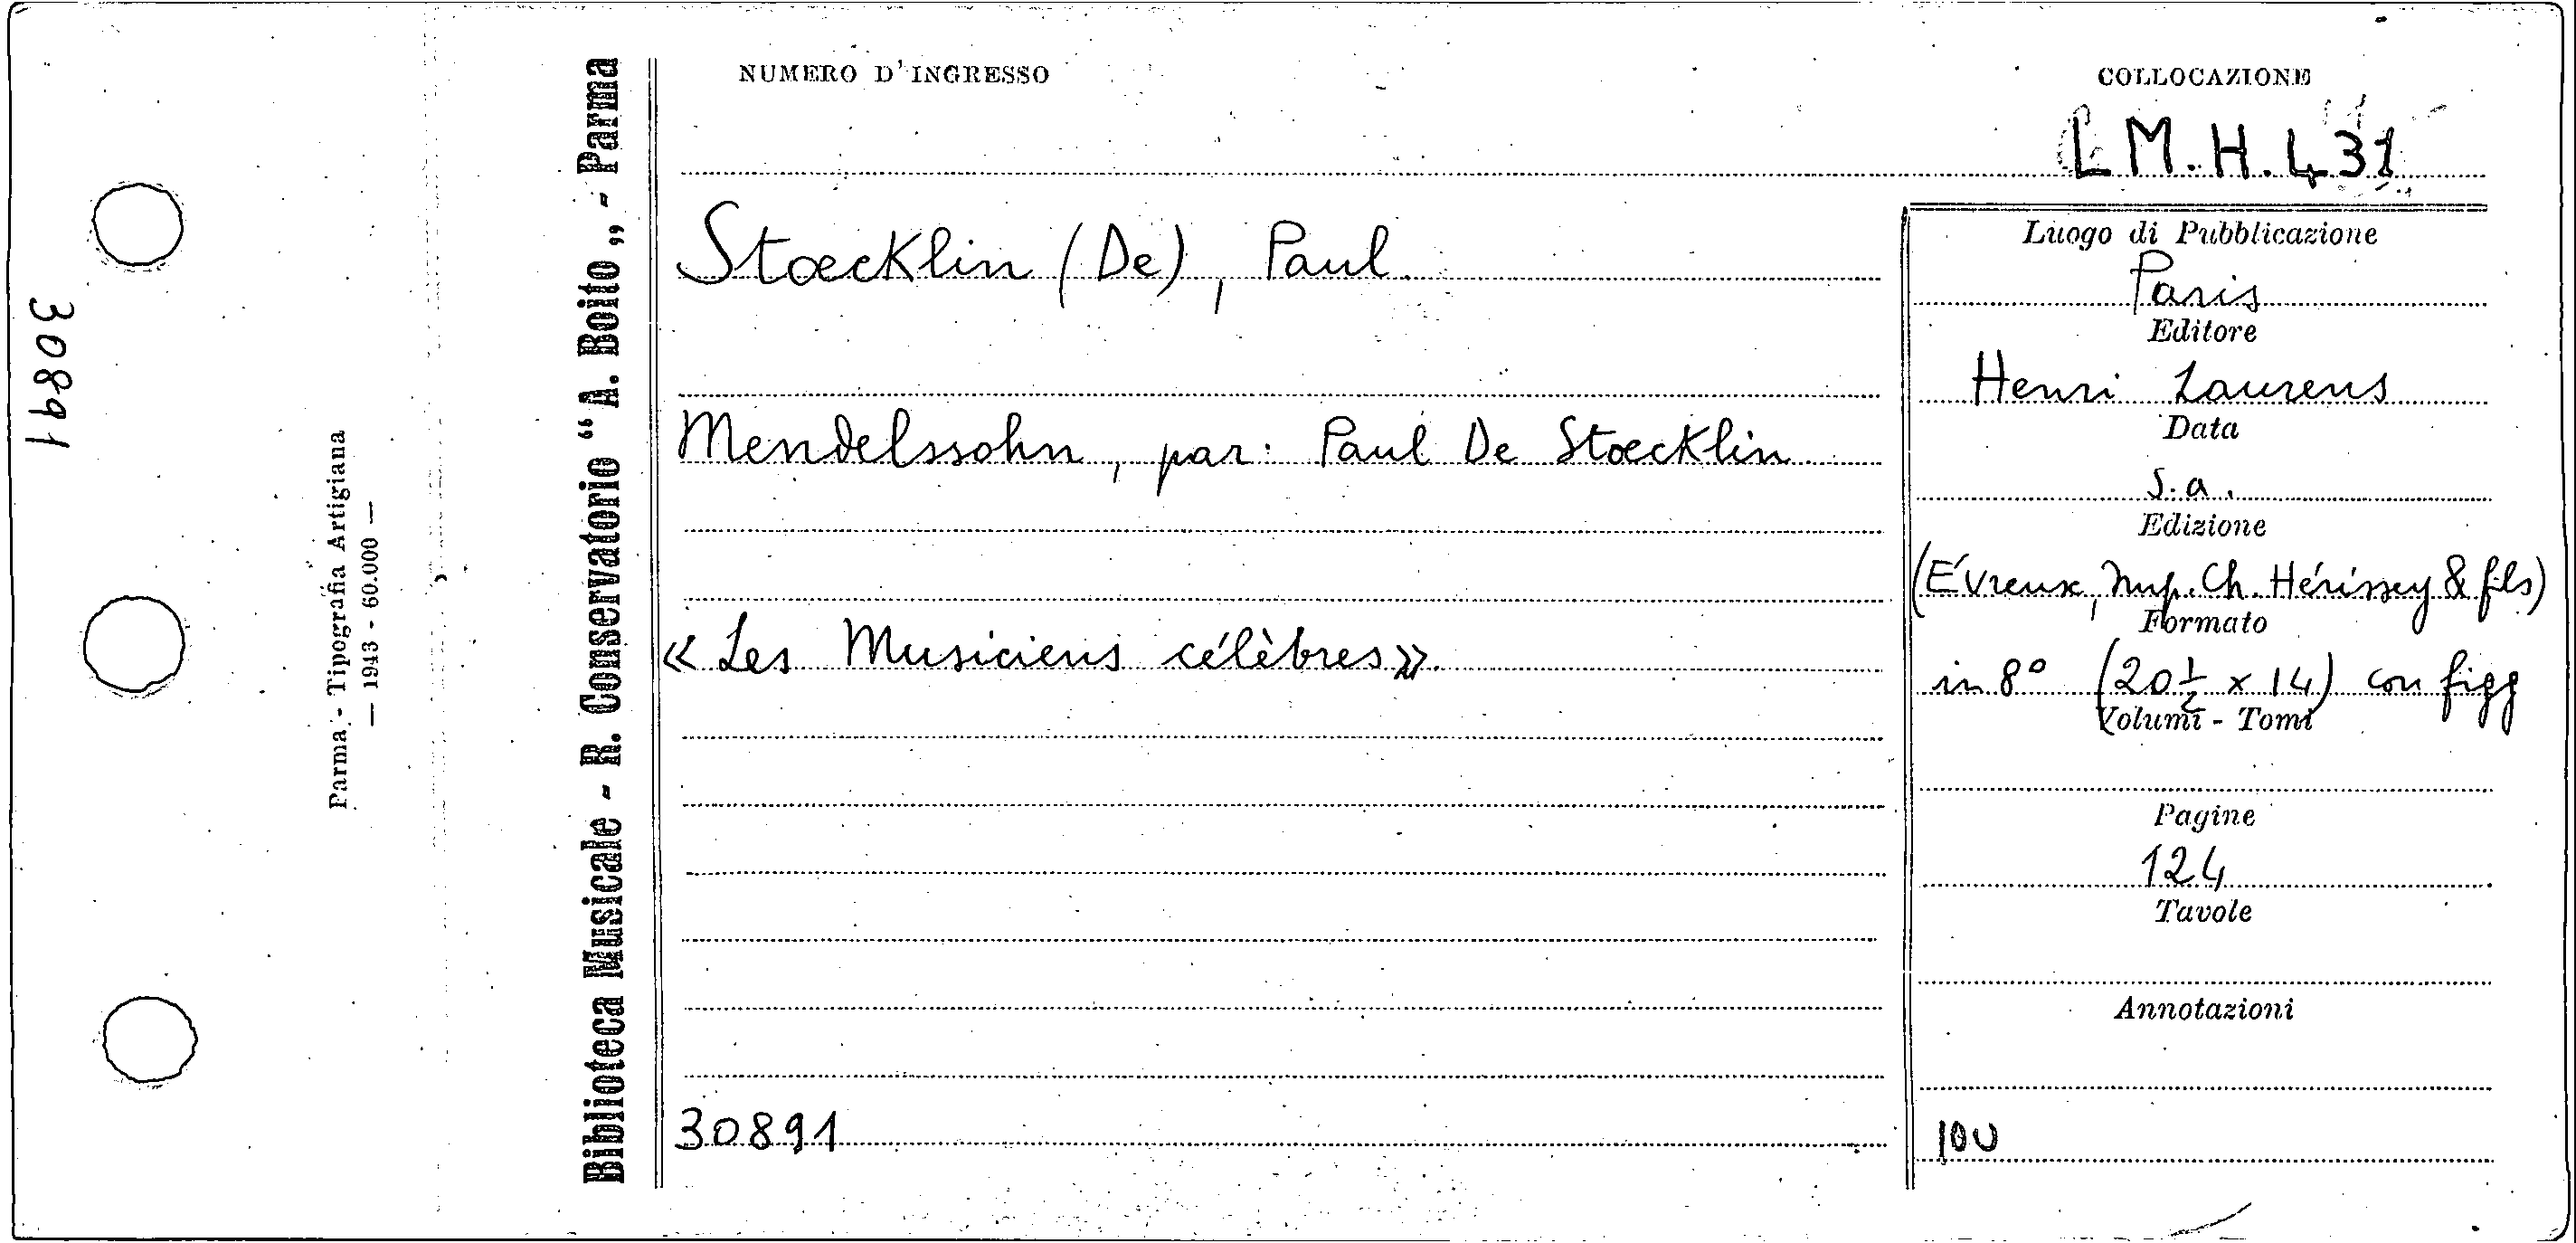 30891
Parma - Tipografia Artigiana
— 1943 - 60.000 —
Biblioteca Musicale - R. Conservatorio “A. Boito„ - Parma
NUMERO D'INGRESSO
Stœcklin (De), Paul.
Mendelssohn, par: Paul De Stœcklin
« Les Musiciens célèbres».
30891
COLLOCAZIONE
LM.H.431
Luogo di Pubblicazione
Paris
Editore
Henri Laurens
Data
S.a.
Edizione
(Évreux, Imp. Ch. Hérissey & fils)
Formato
in 8° (20½ x 14) con figg
Volumi - Tomi
Pagine
124
Tavole
Annotazioni